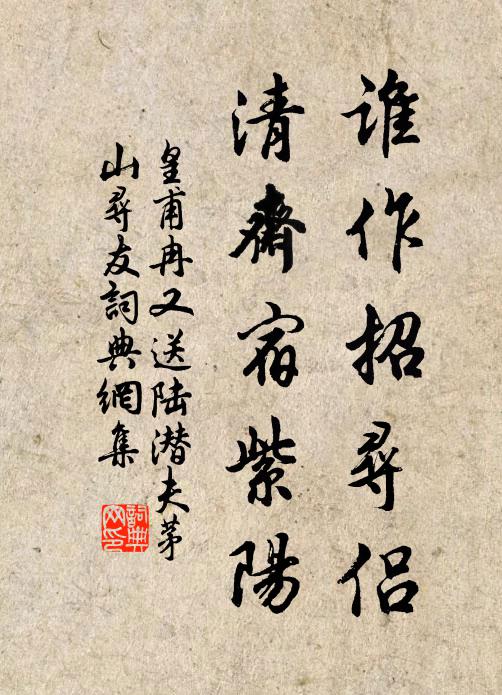 誰作招尋侶
清齋宿紫陽
皇甫冉又送陸潜夫茅
山尋友詞典網集
詞典
网印